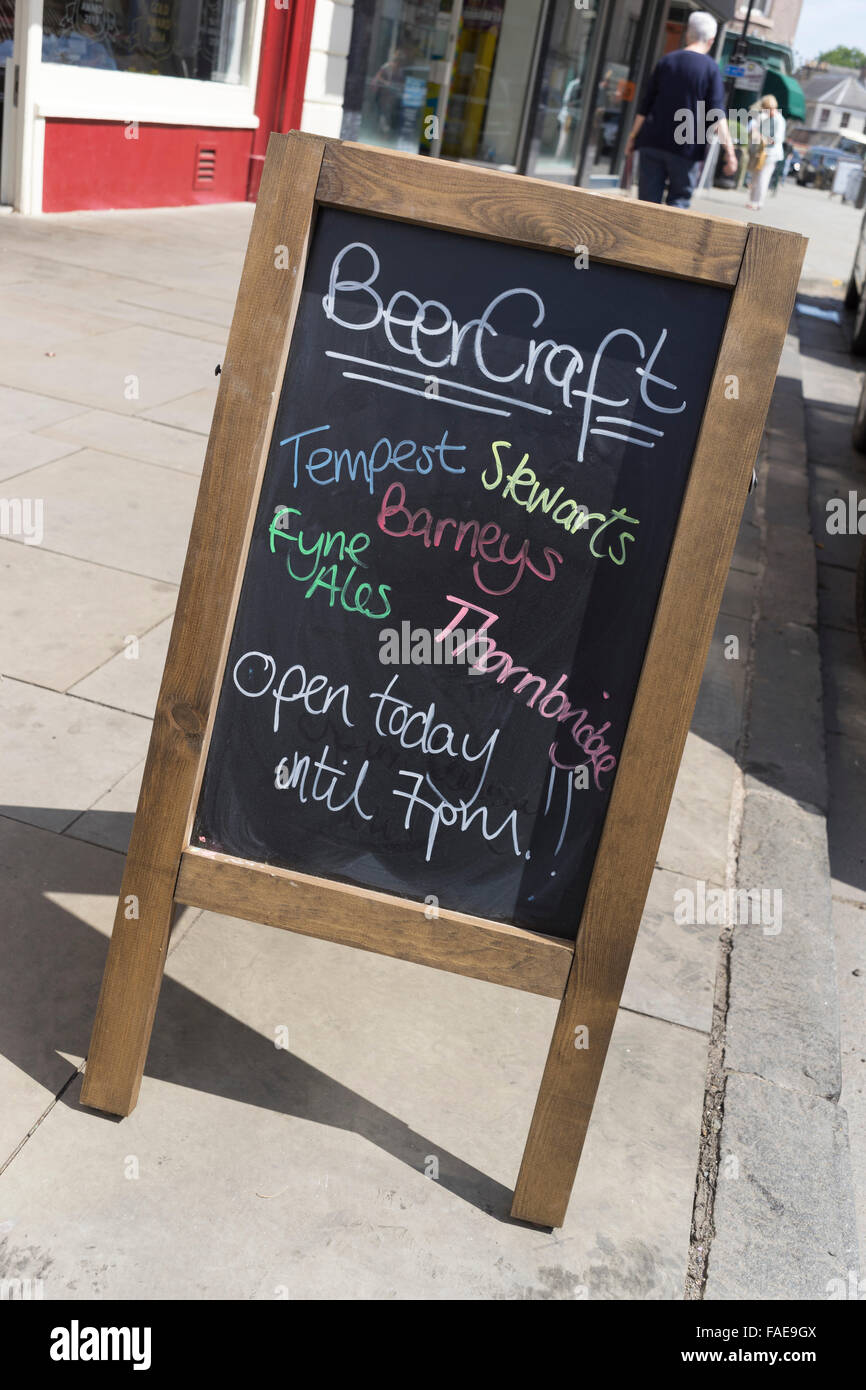 BeerCraft
Tempest Stewarts
Barneys
Fyne
Ales
Thornbridge
Open today
until 7pm.!!
alamy
a
alamy
Image ID: FAE9GX
www.alamy.com